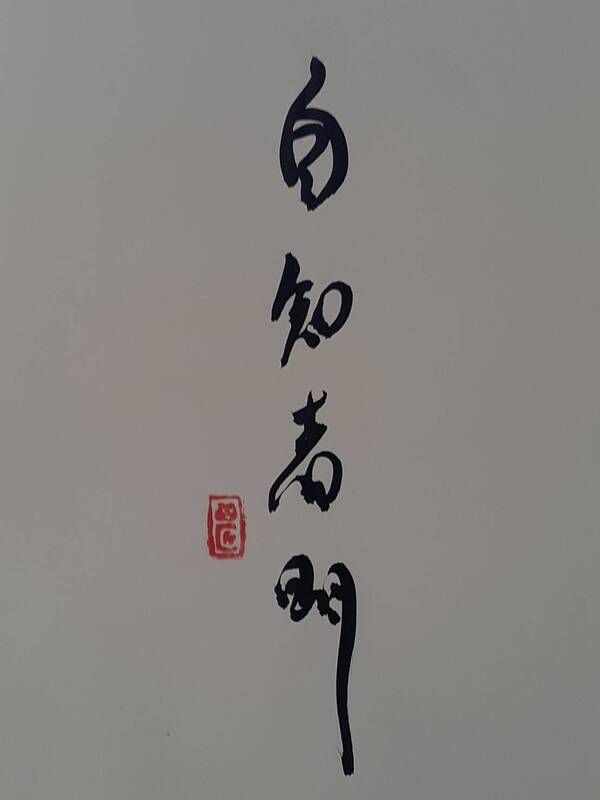 自知者明